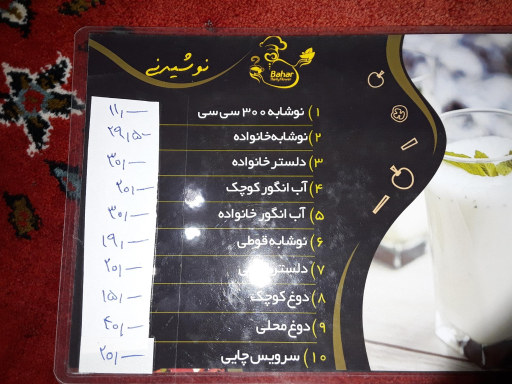 نوشیدنی
Bahar
۱) نوشابه ۳۰۰ سی سی ۱۱,—
۲) نوشابه خانواده ۲۹,۵—
۳) دلستر خانواده ۳۰,—
۴) آب انگور کوچک ۲۰,—
۵) آب انگور خانواده ۳۰,—
۶) نوشابه قوطی ۱۹,—
۷) دلستر ۲۰,—
۸) دوغ کوچک ۱۵,—
۹) دوغ محلی ۴۰,—
۱۰) سرویس چایی ۲۵,—